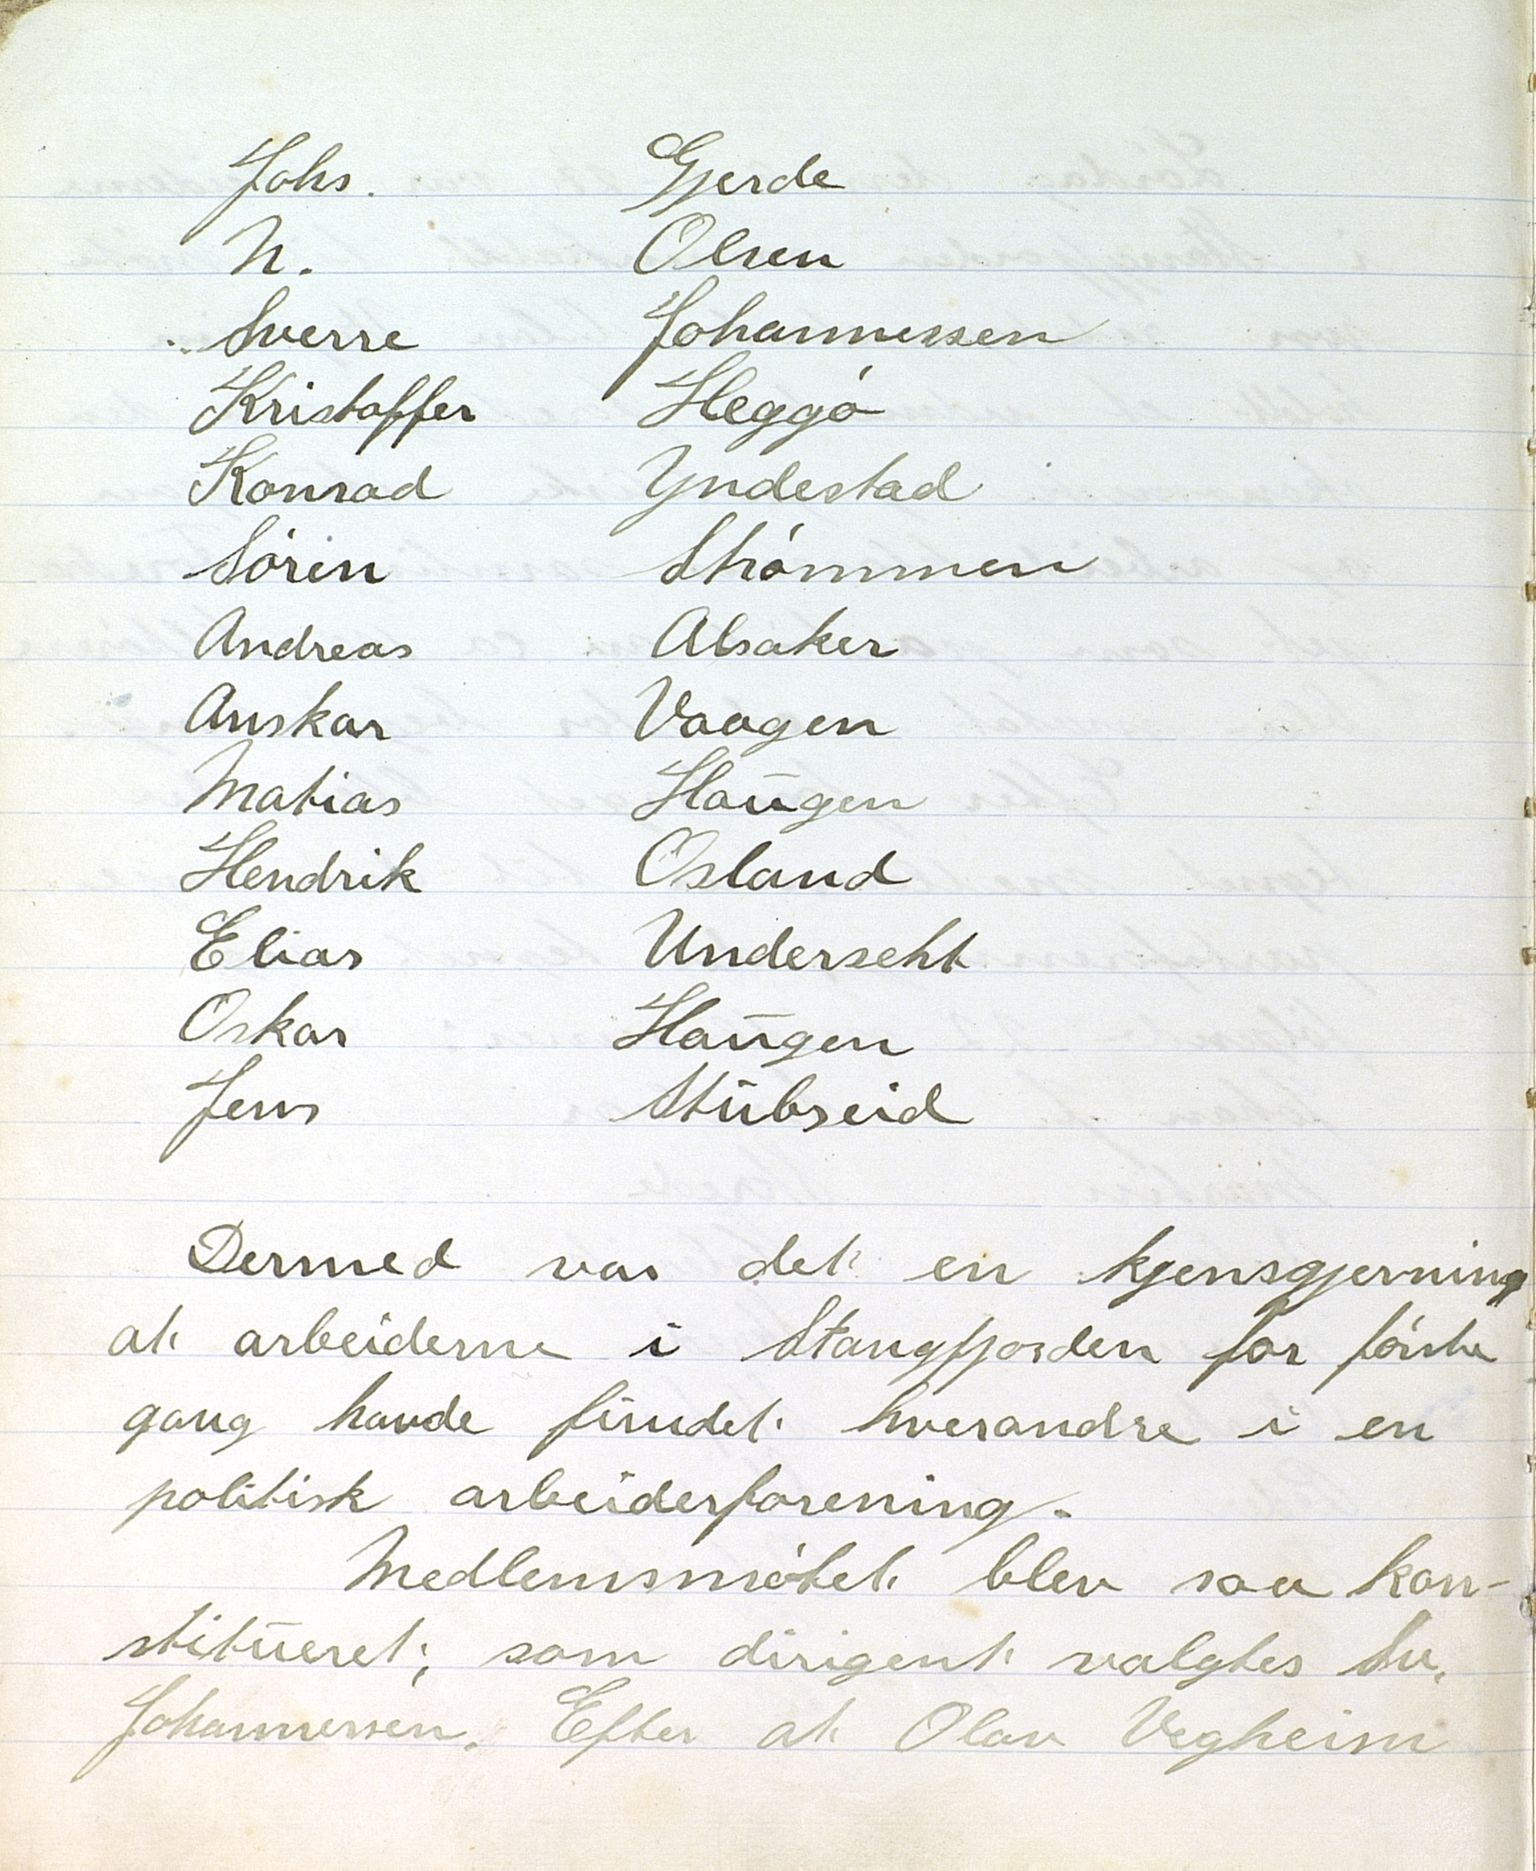 Johs. Gjerde
N. Olsen
Sverre Johannessen
Kristoffer Heggö
Konrad Yndestad
Sörin Strömmen
Andreas Alsaker
Anskar Vaagen
Matias Haugen
Hendrik Osland
Elias Underseht
Oskar Haugen
Jens Stubseid
Dermed var det en kjensgjerning
at arbeiderne i Stangfjorden for förste
gang havde fundet hverandre i en
politisk arbeiderforening.
Medlemsmötet blev saa kon-
stitueret; som dirigent valgtes Sv.
Johannessen. Efter at Olav Vegheim